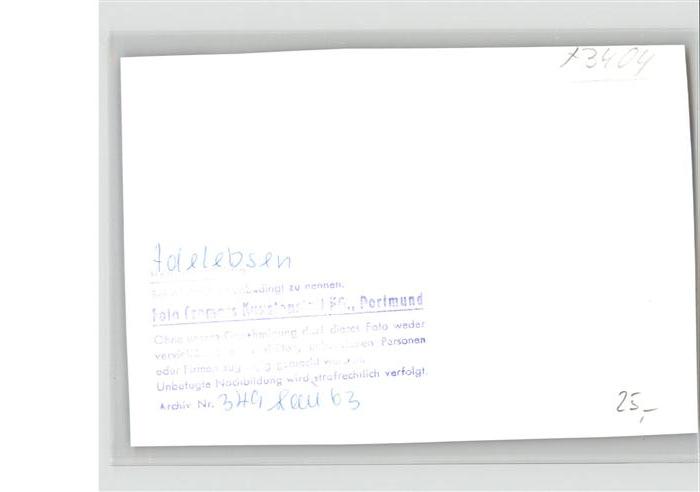 *3404
Adelebsen
unbedingt zu nennen.
Foto Cramers Kunstanstalt KG., Dortmund
Ohne unsere Genehmigung darf dieses Foto weder
Personen
oder Firmen gemacht werden.
Unbefugte Nachbildung wird strafrechtlich verfolgt.
Archiv Nr. 349 63
25,-